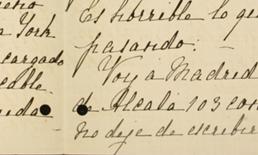 eno
a York
cargado
cable
nida
Es horrible lo que
pasando.
Voy a Madrid
de Alcalá 103 con
no deje de escribir